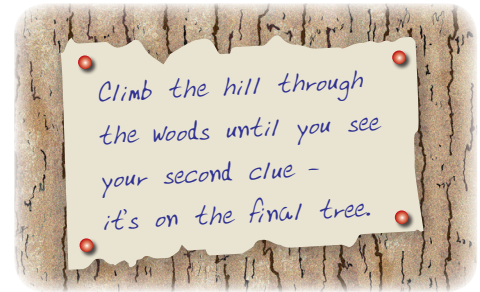 Climb the hill through
the woods until you see
your second clue -
it's on the final tree.